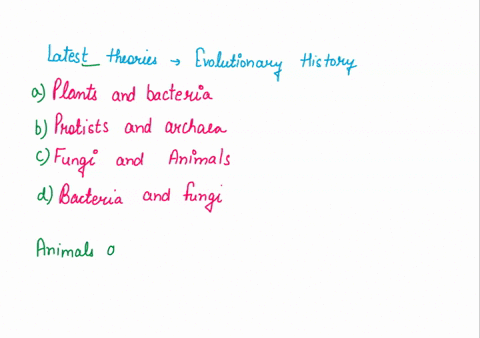 Latest theories → Evolutionary History
a) Plants and bacteria
b) Protists and archaea
c) Fungi and Animals
d) Bacteria and fungi
Animals a